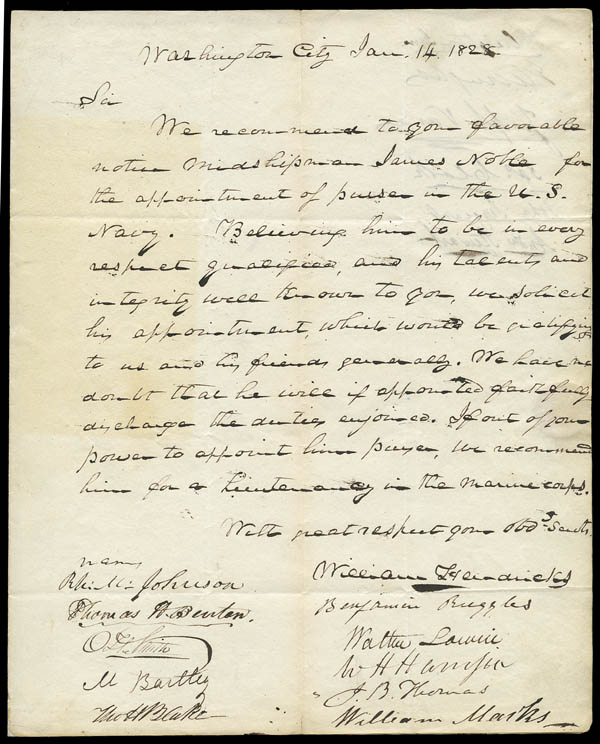 Washington City Jan. 14. 1828
Sir
We recommend to your favorable
notice Midshipman James Noble for
the appointment of purser in the U. S.
Navy. Believing him to be in every
respect qualified, and his talents and
integrity well known to you, we solicit
his appointment, which would be gratifying
to us and his friends generally. We have no
doubt that he will if appointed faithfully
discharge the duties enjoined. If out of your
power to appoint him purser, we recommend
him for a Lieutenancy in the marine corps.
With great respect your obdt Servts
William Hendricks
Benjamin Ruggles
Walter Lowrie
W H Harrison
J. B. Thomas
William Marks
Rh: M: Johnson
Thomas H. Benton.
O. H. Smith
M Bartley
Tho H Blake